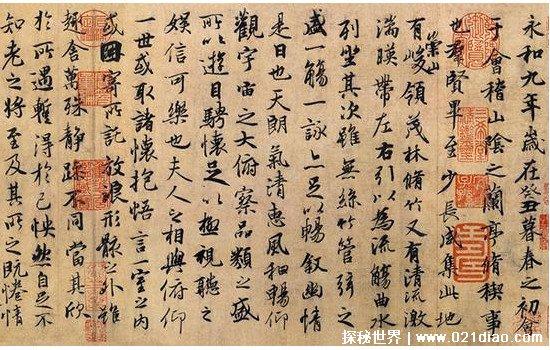 永和九年歲在癸丑暮春之初會
于會稽山陰之蘭亭脩稧事
也群賢畢至少長咸集此地
有崇山峻領茂林脩竹又有清流激
湍暎帶左右引以為流觴曲水
列坐其次雖無絲竹管弦之
盛一觴一詠亦足以暢敘幽情
是日也天朗氣清惠風和暢仰
觀宇宙之大俯察品類之盛
所以遊目騁懷足以極視聽之
娛信可樂也夫人之相與俯仰
一世或取諸懷抱悟言一室之內
或因寄所託放浪形骸之外雖
趣舍萬殊靜躁不同當其欣
於所遇暫得於己怏然自足不
知老之將至及其所之既惓情
探秘世界
www.021diao.com